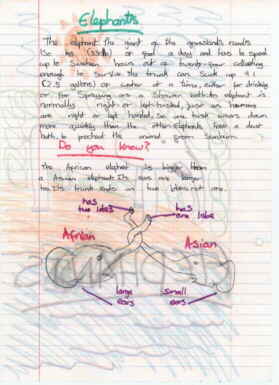 Elephants
The elephant the giant of the grasslands needs
150 kg (330lb) of food a day and has to spend
up to sixteen hours out of twenty-four collecting
enough to survive. The trunk can suck up 9.1
(2.5 gallons) of water at a time, either for drinking
or for spraying as a shower bath. An elephant is
normally right- or left-tusked, just as humans
are right or left handed, so one tusk wears down
more quickly than the other. elephants, take a dust
bath, to protect the animal from sunburn.
Do you know?
The African elephant is bigger than
a Asian elephant. Its ears are larger
has Its trunk ends in two lobes not one.
has two lobes
has one lobe
African
Asian
large ears
small ears